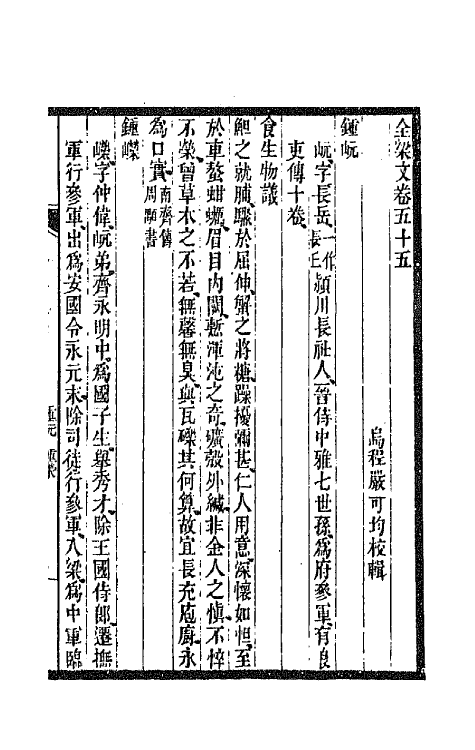 全梁文卷五十五
烏程嚴可均校輯
鍾岏
岏字長岳一作長丘潁川長社人晉侍中雅七世孫爲府參軍有良
吏傳十卷
食生物議
䱇之就脯驟於屈伸蟹之將糖躁擾彌甚仁人用意深懷如怛至
於車螯蚶蠣眉目內闕慙渾沌之奇礦殼外緘非金人之愼不悴
不榮曾草木之不若無馨無臭與瓦礫其何算故宜長充庖廚永
爲口實南齊書周顒傳
鍾嶸
嶸字仲偉岏弟齊永明中爲國子生舉秀才除王國侍郎遷撫
軍行參軍出爲安國令永元末除司徒行參軍入梁爲中軍臨